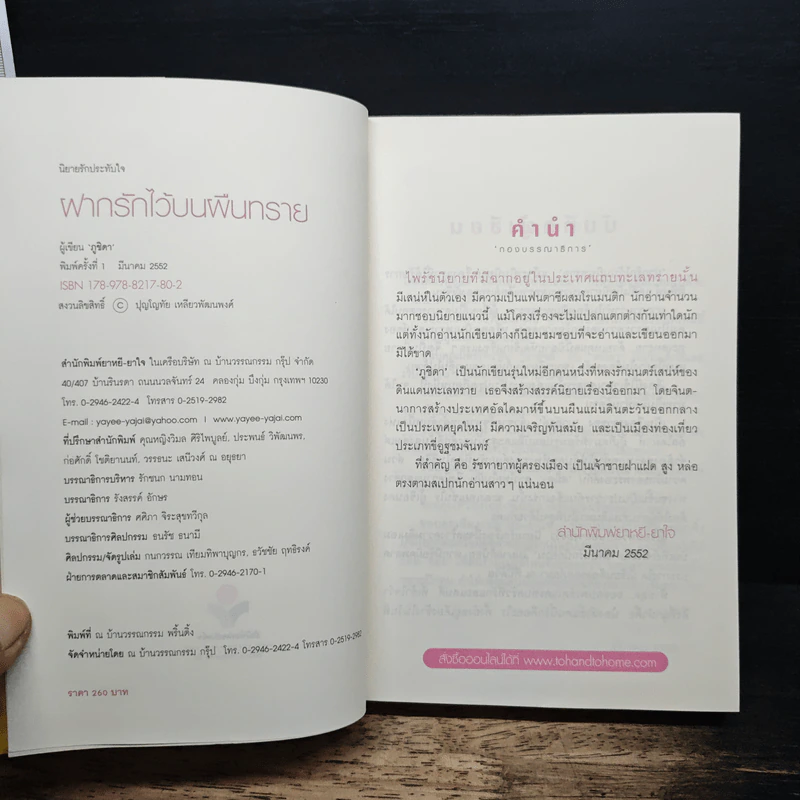 นิยายรักประทับใจ
ฝากรักไว้บนผืนทราย
ผู้เขียน 'ภูชิดา'
พิมพ์ครั้งที่ 1 มีนาคม 2552
ISBN 178-978-8217-80-2
สงวนลิขสิทธิ์ © ปุญโญทัย เหลียวพัฒนพงศ์
สำนักพิมพ์ยาหยี-ยาใจ ในเครือบริษัท ณ บ้านวรรณกรรม กรุ๊ป จำกัด
40/407 บ้านรินรดา ถนนนวลจันทร์ 24 คลองกุ่ม บึงกุ่ม กรุงเทพฯ 10230
โทร. 0-2946-2422-4 โทรสาร 0-2519-2982
E-mail : yayee-yajai@yahoo.com I www.yayee-yajai.com
ที่ปรึกษาสำนักพิมพ์ คุณหญิงวิมล ศิริไพบูลย์, ประพนธ์ วิพัฒนพร,
ก่อศักดิ์ โชติยานนท์, วรรธนะ เสนีวงศ์ ณ อยุธยา
บรรณาธิการบริหาร รักชนก นามทอน
บรรณาธิการ รังสรรค์ อักษร
ผู้ช่วยบรรณาธิการ ศศิภา จิระสุขทวีกุล
บรรณาธิการศิลปกรรม ธนรัช ธนามี
ศิลปกรรม/จัดรูปเล่ม กนกวรรณ เทียมทิพาบุญกร, ธวัชชัย ฤทธิรงค์
ฝ่ายการตลาดและสมาชิกสัมพันธ์ โทร. 0-2946-2170-1
พิมพ์ที่ ณ บ้านวรรณกรรม พริ้นติ้ง
จัดจำหน่ายโดย ณ บ้านวรรณกรรม กรุ๊ป โทร. 0-2946-2422-4 โทรสาร 0-2519-2982
ราคา 260 บาท
คำนำ
"กองบรรณาธิการ"
ไพรัชนิยายที่มีฉากอยู่ในประเทศแถบทะเลทรายนั้น
มีเสน่ห์ในตัวเอง มีความเป็นแฟนตาซีผสมโรแมนติก นักอ่านจำนวน
มากชอบนิยายแนวนี้ แม้โครงเรื่องจะไม่แปลกแตกต่างกันเท่าใดนัก
แต่ทั้งนักอ่านนักเขียนต่างก็นิยมชมชอบที่จะอ่านและเขียนออกมา
มิได้ขาด
'ภูชิดา' เป็นนักเขียนรุ่นใหม่อีกคนหนึ่งที่หลงรักมนตร์เสน่ห์ของ
ดินแดนทะเลทราย เธอจึงสร้างสรรค์นิยายเรื่องนี้ออกมา โดยจินต-
นาการสร้างประเทศอัลไคมาห์ขึ้นบนผืนแผ่นดินตะวันออกกลาง
เป็นประเทศยุคใหม่ มีความเจริญทันสมัย และเป็นเมืองท่องเที่ยว
ประเภทขี่อูฐชมจันทร์
ที่สำคัญ คือ รัชทายาทผู้ครองเมือง เป็นเจ้าชายฝาแฝด สูง หล่อ
ตรงตามสเปกนักอ่านสาวๆ แน่นอน
สำนักพิมพ์ยาหยี-ยาใจ
มีนาคม 2552
สั่งซื้อออนไลน์ได้ที่ www.tohandtohome.com